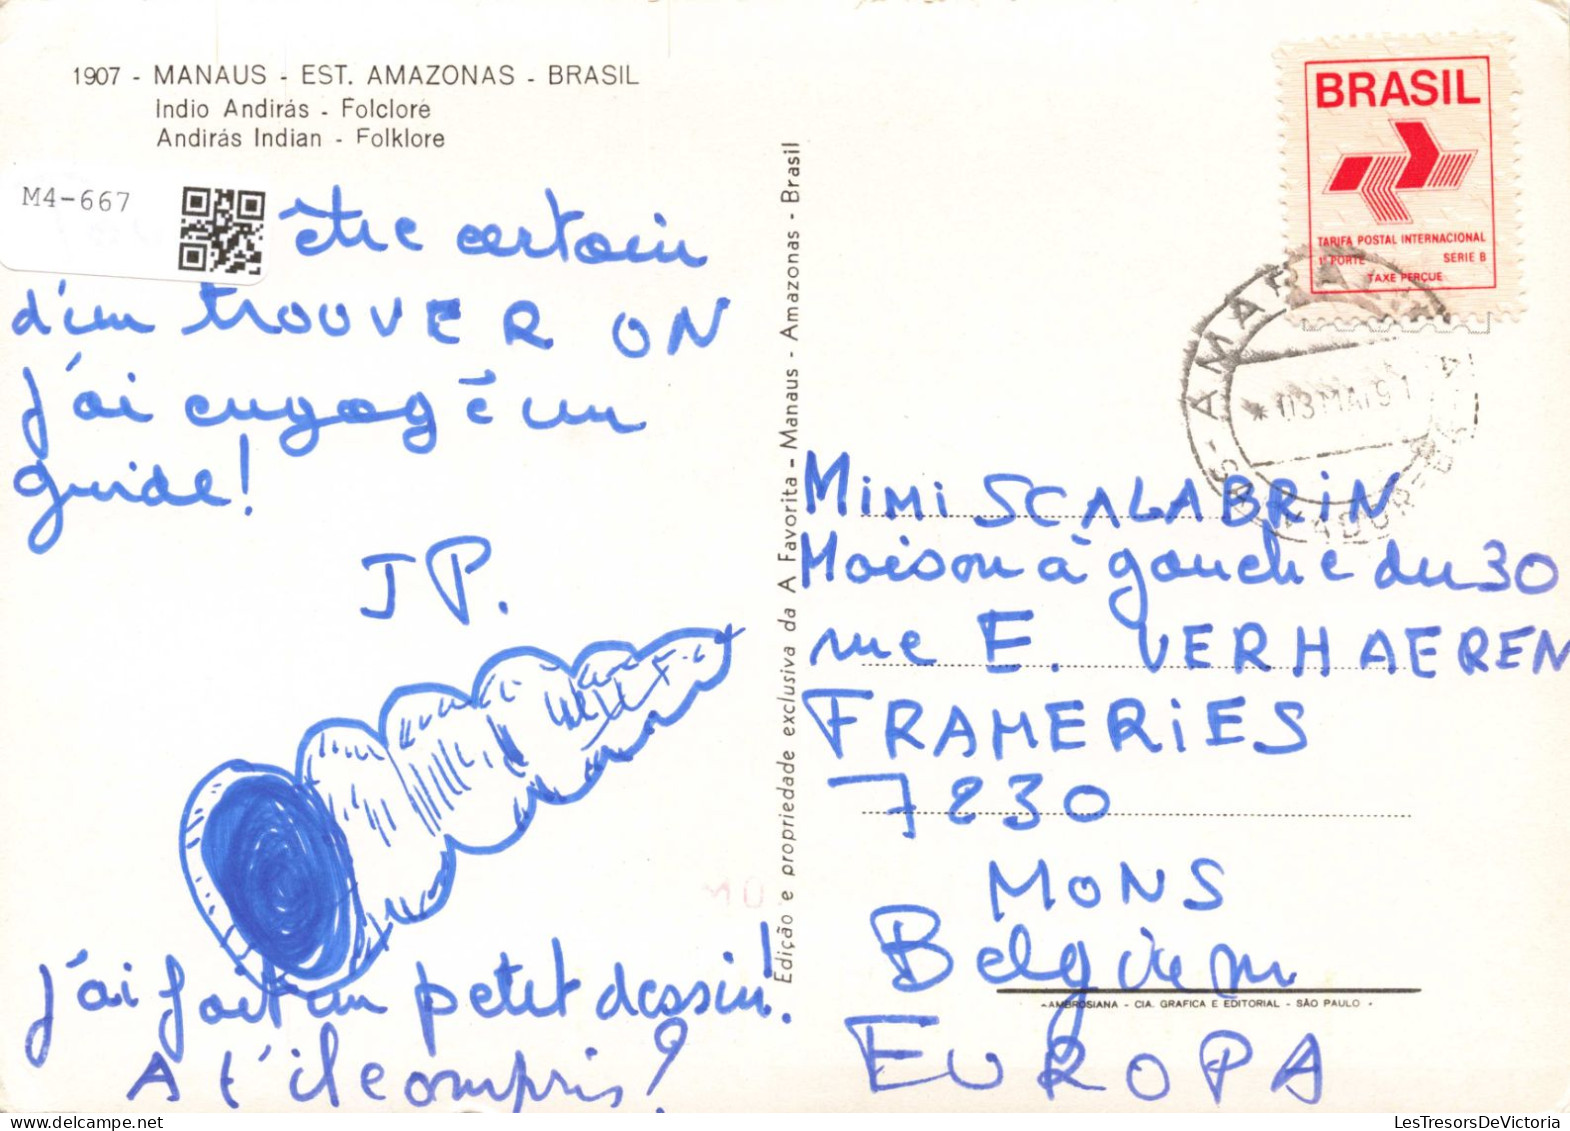 1907 - MANAUS - EST. AMAZONAS - BRASIL
Indio Andirás - Folclore
Andirás Indian - Folklore
M4-667
être certain
d'en TROUVER ON
J'ai engagé un
guide!
JP.
J'ai fait un petit dessin!
A t'il compris?
Edição e propriedade exclusiva da A Favorita - Manaus - Amazonas - Brasil
BRASIL
TARIFA POSTAL INTERNACIONAL
1º PORTE SÉRIE B
TAXE PERÇUE
AMARA
03 MAI 91
SALVADOR-BA
MiMi SCALABRiN
Maison à gauche du 30
rue E. VERHAEREN
FRAMERiES
7230
MONS
Belgium
-AMBROSIANA - CIA. GRAFICA E EDITORIAL - SÃO PAULO -
EUROPA
LesTresorsDeVictoria